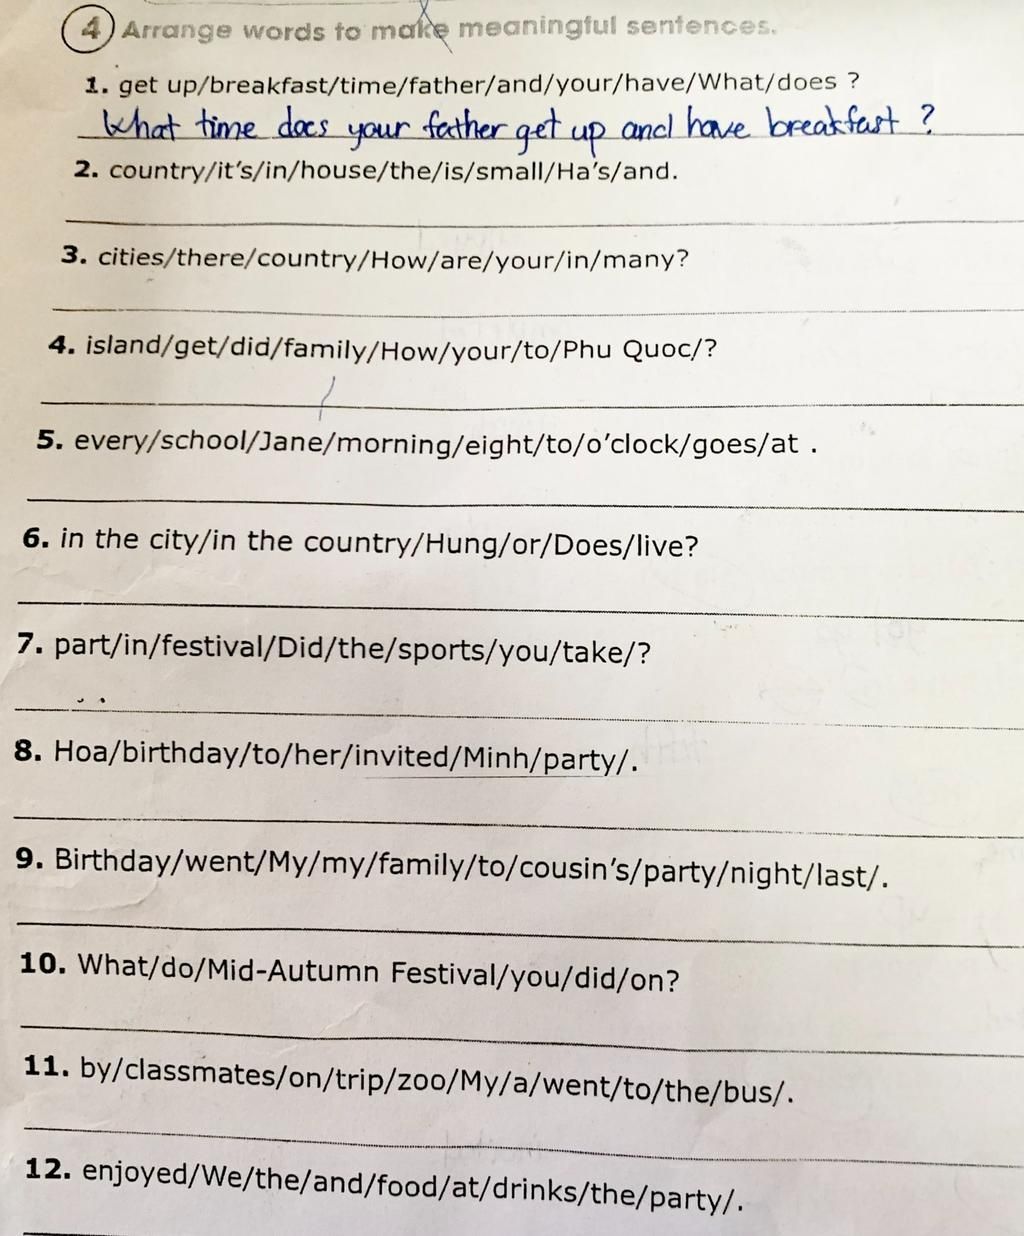 4 Arrange words to make meaningful sentences.
1. get up/breakfast/time/father/and/your/have/What/does ?
What time does your father get up and have breakfast ?
2. country/it's/in/house/the/is/small/Ha's/and.
3. cities/there/country/How/are/your/in/many?
4. island/get/did/family/How/your/to/Phu Quoc/?
5. every/school/Jane/morning/eight/to/o'clock/goes/at .
6. in the city/in the country/Hung/or/Does/live?
7. part/in/festival/Did/the/sports/you/take/?
8. Hoa/birthday/to/her/invited/Minh/party/.
9. Birthday/went/My/my/family/to/cousin's/party/night/last/.
10. What/do/Mid-Autumn Festival/you/did/on?
11. by/classmates/on/trip/zoo/My/a/went/to/the/bus/.
12. enjoyed/We/the/and/food/at/drinks/the/party/.